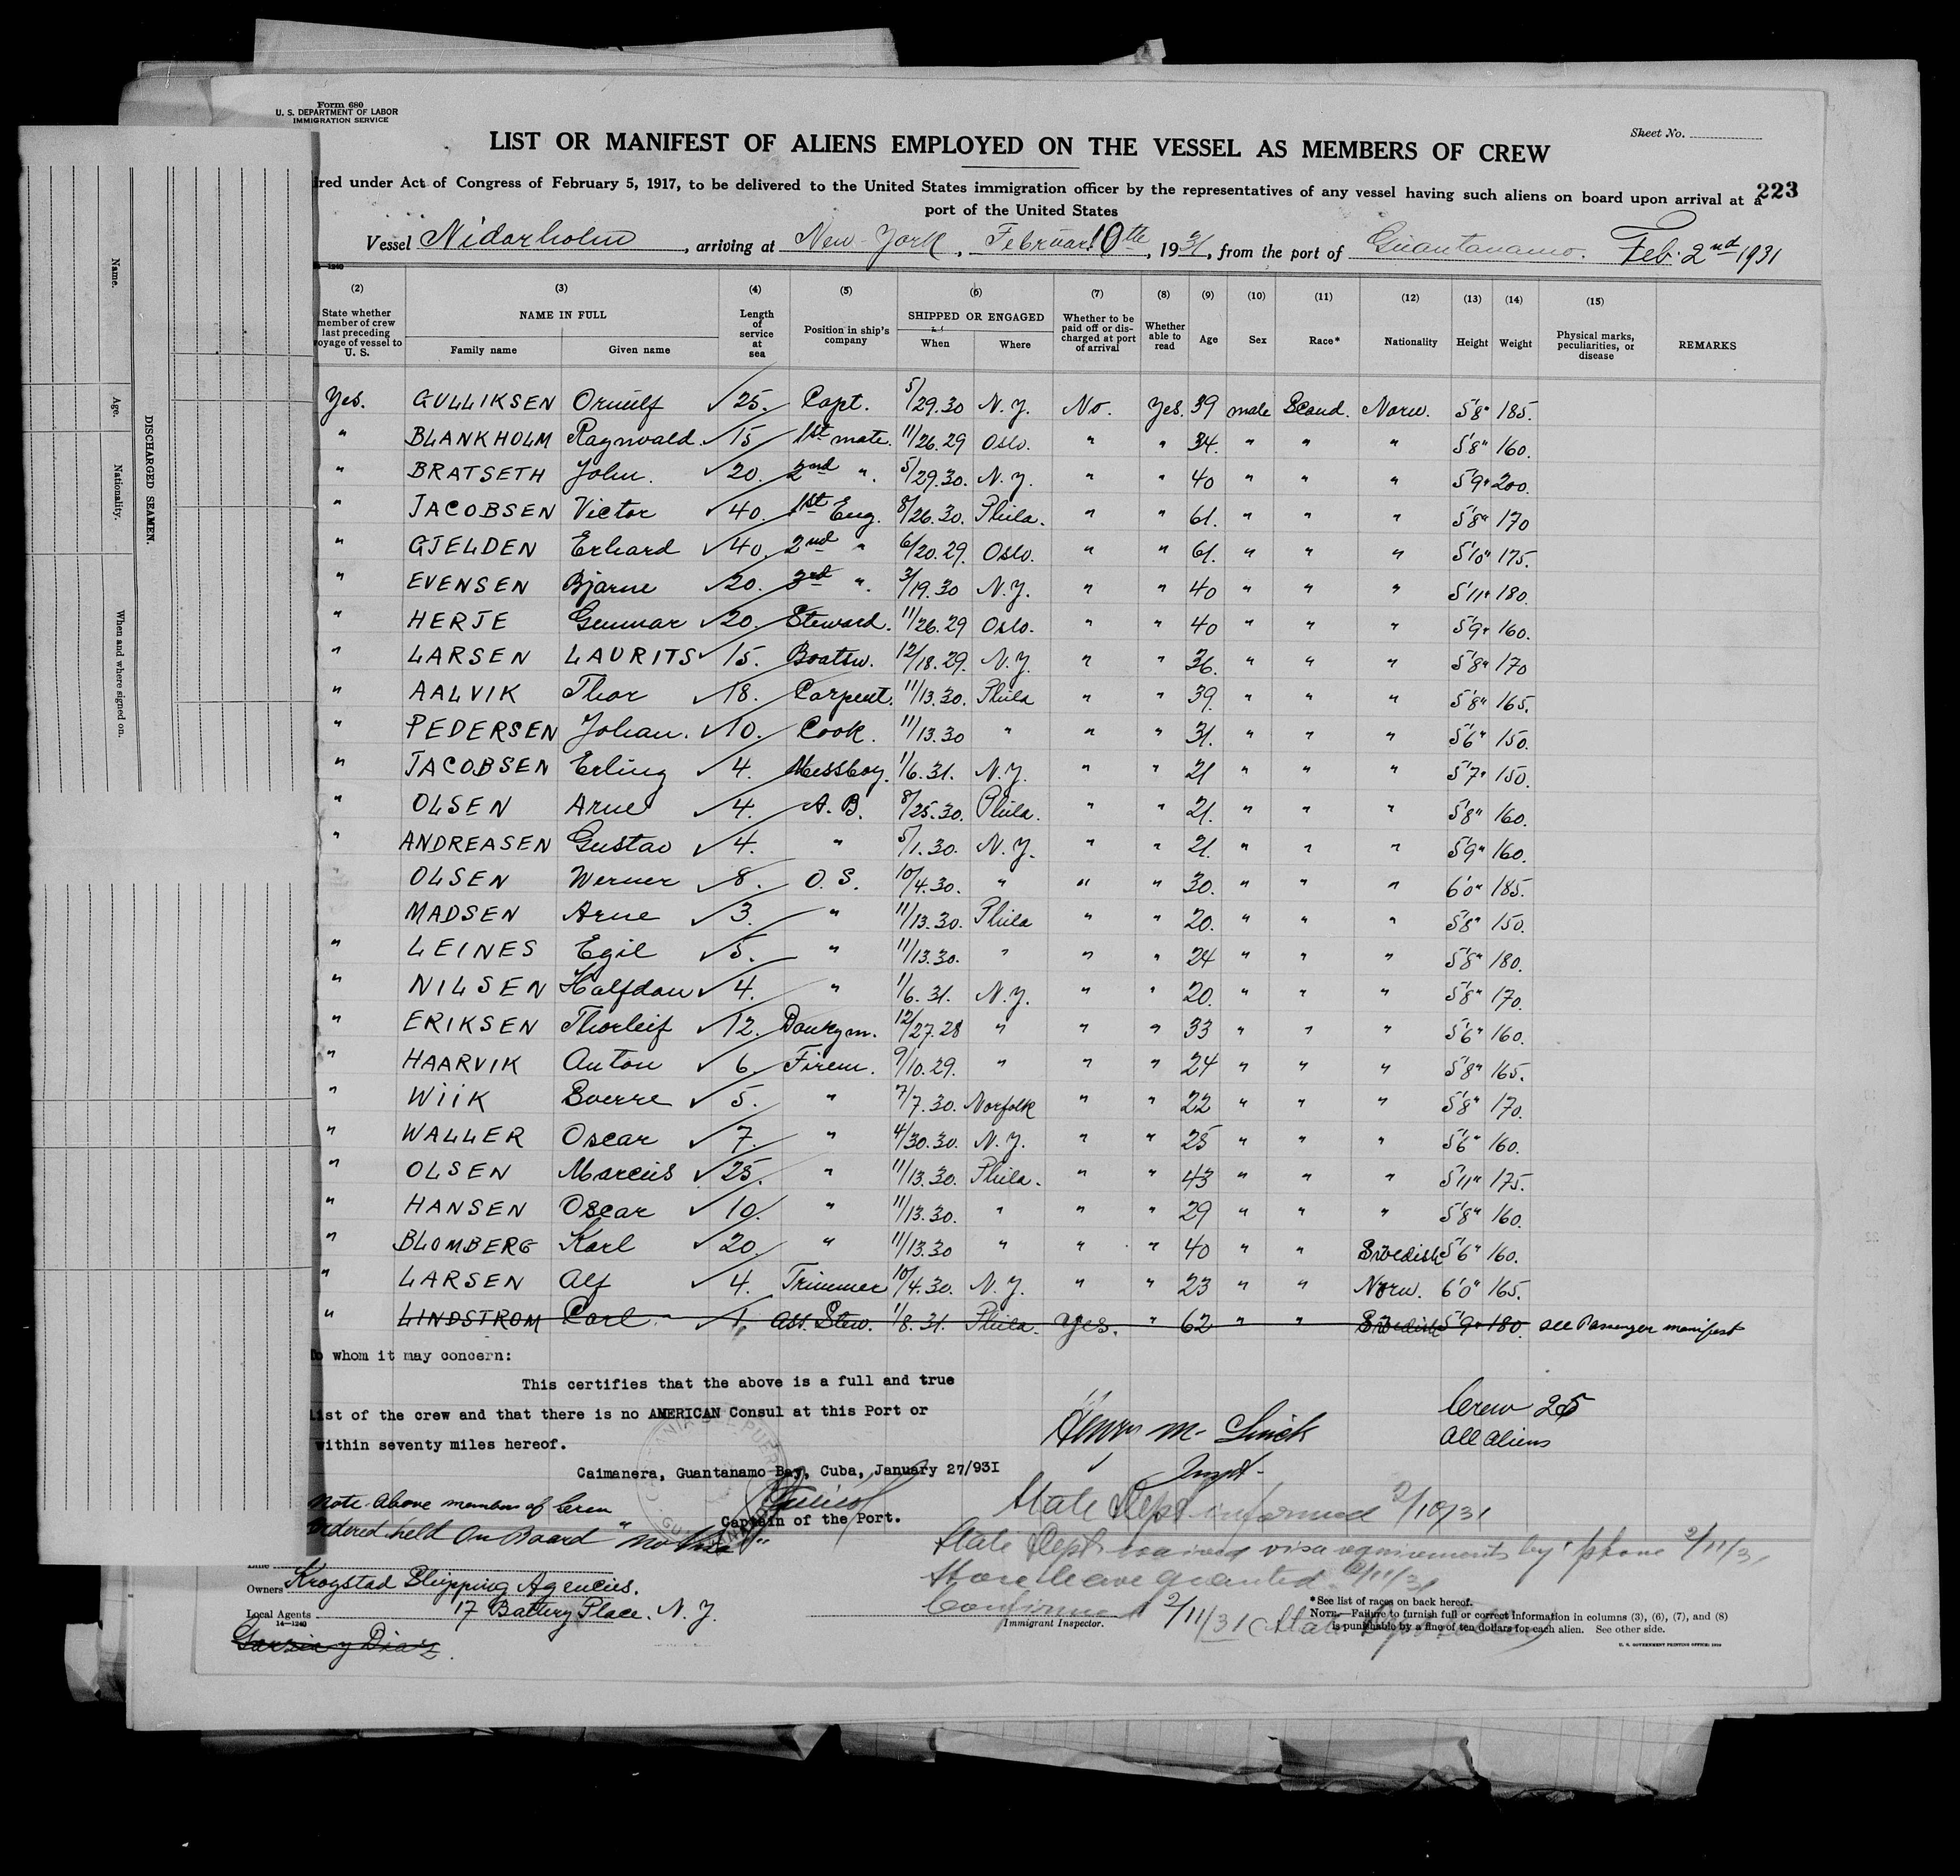 Form 680
U. S. DEPARTMENT OF LABOR
IMMIGRATION SERVICE
Sheet No.
LIST OR MANIFEST OF ALIENS EMPLOYED ON THE VESSEL AS MEMBERS OF CREW
223
ired under Act of Congress of February 5, 1917, to be delivered to the United States immigration officer by the representatives of any vessel having such aliens on board upon arrival at a
port of the United States
Vessel Nidarholm, arriving at New-York, Februar 10th, 1931, from the port of Guantanamo. Feb. 2nd 1931
(2) (3) (4) (5) (6) (7) (8) (9) (10) (11) (12) (13) (14) (15)
State whether member of crew last preceding voyage of vessel to U. S. NAME IN FULL Family name Given name Length of service at sea Position in ship's company SHIPPED OR ENGAGED When Where Whether to be paid off or discharged at port of arrival Whether able to read Age Sex Race* Nationality Height Weight Physical marks, peculiarities, or disease REMARKS
Yes. GULLIKSEN Ornulf ✓ 25. Capt. 5/29.30 N.Y. No. Yes. 39 male Scand. Norw. 5'8" 185.
" BLANKHOLM Ragnvald. ✓ 15 1st mate. 11/26.29 Oslo. " " 34. " " " 5'8" 160.
" BRATSETH John. ✓ 20. 2nd ". 5/29.30. N.Y. " " 40 " " " 5'9" 200.
" JACOBSEN Victor ✓ 40. 1st Eng. 8/26.30. Phila. " " 61. " " " 5'8" 170
" GJELDEN Erhard ✓ 40. 2nd " 6/20.29. Oslo. " " 61. " " " 5'10" 175.
" EVENSEN Bjarne ✓ 20. 3rd ". 3/19.30 N.Y. " " 40 " " " 5'11" 180.
" HERJE Gunnar ✓ 20. Steward. 11/26.29 Oslo. " " 40 " " " 5'9" 160.
" LARSEN LAURITS ✓ 15. Boatsw. 12/18.29. N.Y. " " 36. " " " 5'8" 170
" AALVIK Thor ✓ 18. Carpent. 11/13.30. Phila " " 39. " " " 5'8" 165.
" PEDERSEN Johan. ✓ 10. Cook. 11/13.30 " " " 31. " " " 5'6" 150.
" JACOBSEN Erling ✓ 4. Messboy. 1/6.31. N.Y. " " 21 " " " 5'7" 150.
" OLSEN Arne ✓ 4. A.B. 8/25.30. Phila. " " 21. " " " 5'8" 160.
" ANDREASEN Gustav ✓ 4. " 5/1.30. N.Y. " " 21. " " " 5'9" 160.
OLSEN Werner ✓ 8. O.S. 10/4.30. " " " 30. " " " 6'0" 185.
MADSEN Arne ✓ 3. " 11/13.30. Phila " " 20. " " " 5'8" 150.
" LEINES Egil ✓ 5. " 11/13.30. " " " 24 " " " 5'8" 180.
" NILSEN Halfdan ✓ 4. " 1/6.31. N.Y. " " 20. " " " 5'8" 170.
" ERIKSEN Thorleif ✓ 12. Donkym. 12/27.28 " " " 33 " " " 5'6" 160.
" HAARVIK Anton ✓ 6 Firem. 9/10.29. " " " 24 " " " 5'8" 165.
" WIIK Boerre ✓ 5. " 7/7.30. Norfolk " " 22 " " " 5'8" 170.
" WALLER Oscar ✓ 7. " 4/30.30. N.Y. " " 25 " " " 5'6" 160.
" OLSEN Marcus ✓ 25. " 11/13.30. Phila. " " 43 " " " 5'11" 175.
" HANSEN Oscar ✓ 10. " 11/13.30. " " " 29 " " " 5'8" 160.
" BLOMBERG Karl ✓ 20. " 11/13.30 " " " 40 " " Swedish 5'6" 160.
" LARSEN Alf ✓ 4. Trimmer 10/4.30. N.Y. " " 23 " " Norw. 6'0" 165.
" LINDSTROM Carl ✓ 1. Ass. Stew. 1/8.31. Phila. Yes. " 62 " " Swedish 5'9" 180. see Passenger manifest
To whom it may concern:
This certifies that the above is a full and true
list of the crew and that there is no AMERICAN Consul at this Port or
within seventy miles hereof.
Caimanera, Guantanamo Bay, Cuba, January 27/931
Captain of the Port.
Crew 25
All aliens
Henry M.
Inspt-
State Dept informed 2/10/31
Note. Above members of Crew
ordered held On Board "No Visa"
State Dept. waived visa requirements by 'phone 2/11/31
Shore leave granted. 2/11/31
2/11/31
Owners Krogstad Shipping Agencies.
Local Agents 17 Battery Place. N.Y.
14—1240
Immigrant Inspector.
*See list of races on back hereof.
NOTE.—Failure to furnish full or correct information in columns (3), (6), (7), and (8)
is punishable by a fine of ten dollars for each alien. See other side.
U. S. GOVERNMENT PRINTING OFFICE
DISCHARGED SEAMEN.
Name.
Age.
Nationality.
When and where signed on.